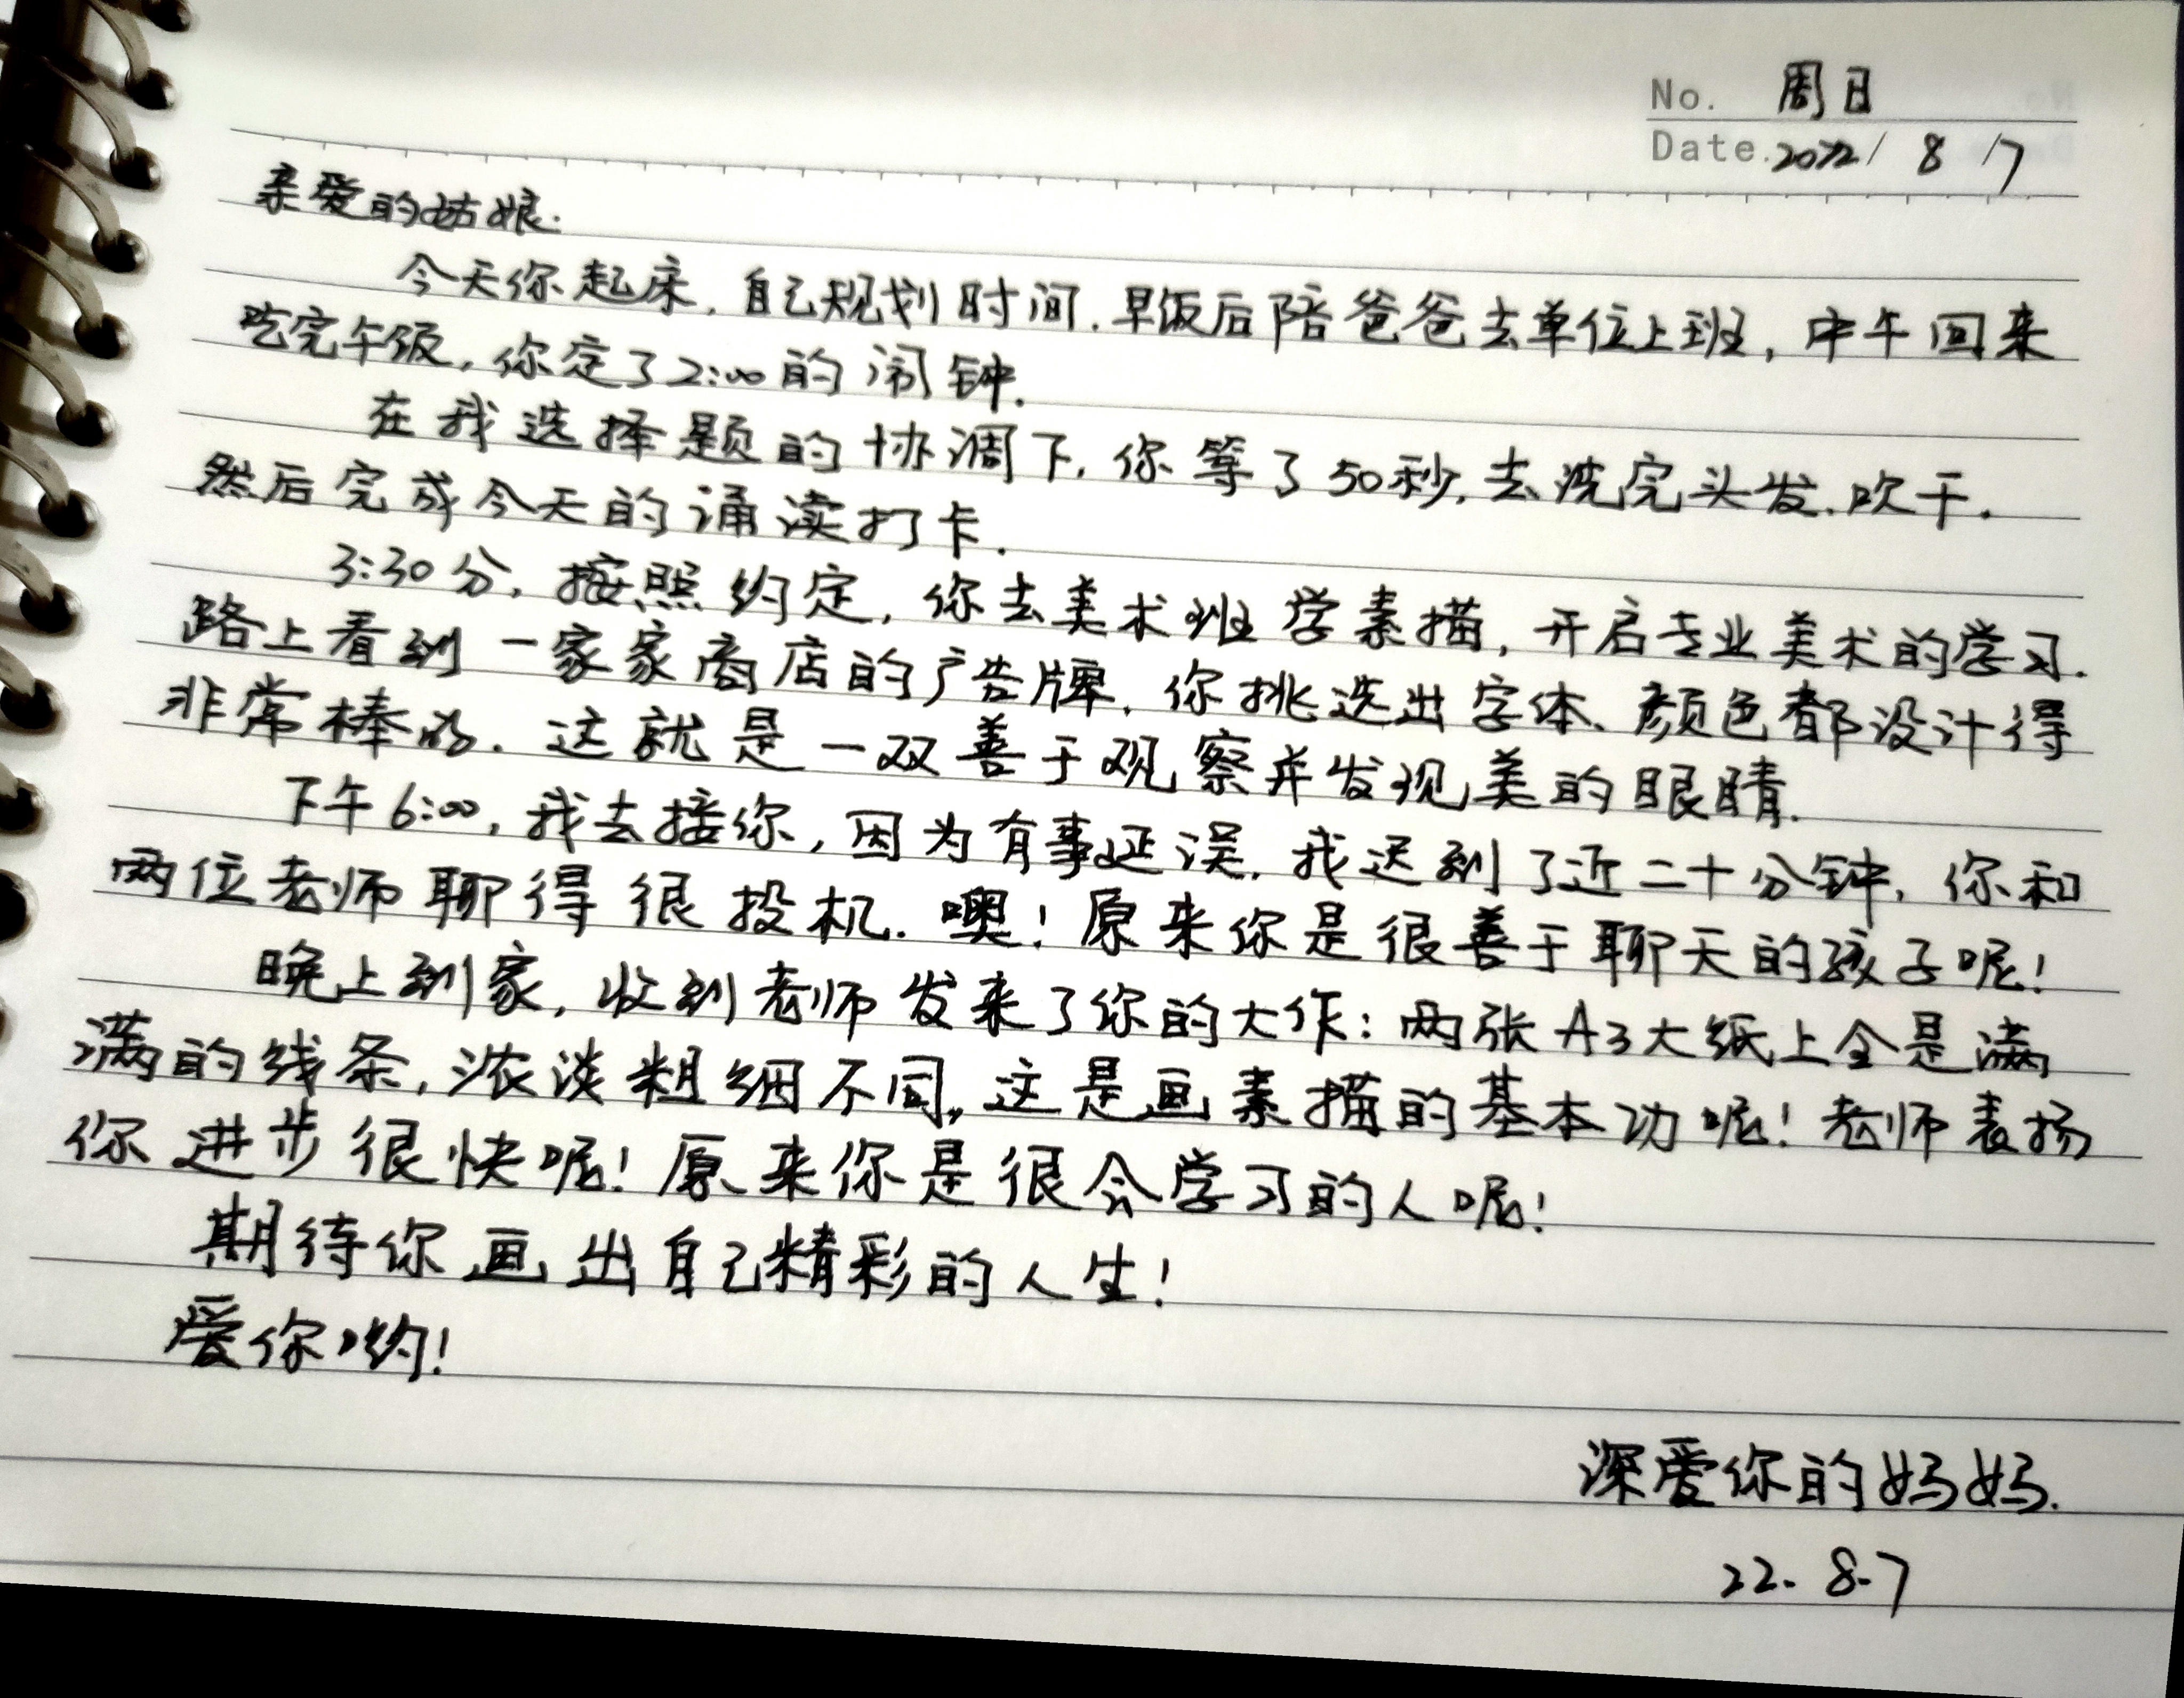 No. 周日
Date. 2022/ 8 /7
亲爱的姑娘:
今天你起床,自己规划时间.早饭后陪爸爸去单位上班,中午回来
吃完午饭,你定了2:00的闹钟.
在我选择题的协调下,你等了50秒,去洗完头发.吹干.
然后完成今天的诵读打卡.
3:30分,按照约定,你去美术班学素描,开启专业美术的学习.
路上看到一家家商店的广告牌,你挑选出字体、颜色都设计得
非常棒的.这就是一双善于观察并发现美的眼睛.
下午6:00,我去接你,因为有事延误,我迟到了近二十分钟,你和
两位老师聊得很投机.噢!原来你是很善于聊天的孩子呢!
晚上到家,收到老师发来了你的大作:两张A3大纸上全是满
满的线条,浓淡粗细不同,这是画素描的基本功呢!老师表扬
你进步很快呢!原来你是很会学习的人呢!
期待你画出自己精彩的人生!
爱你哟!
深爱你的妈妈.
22.8.7